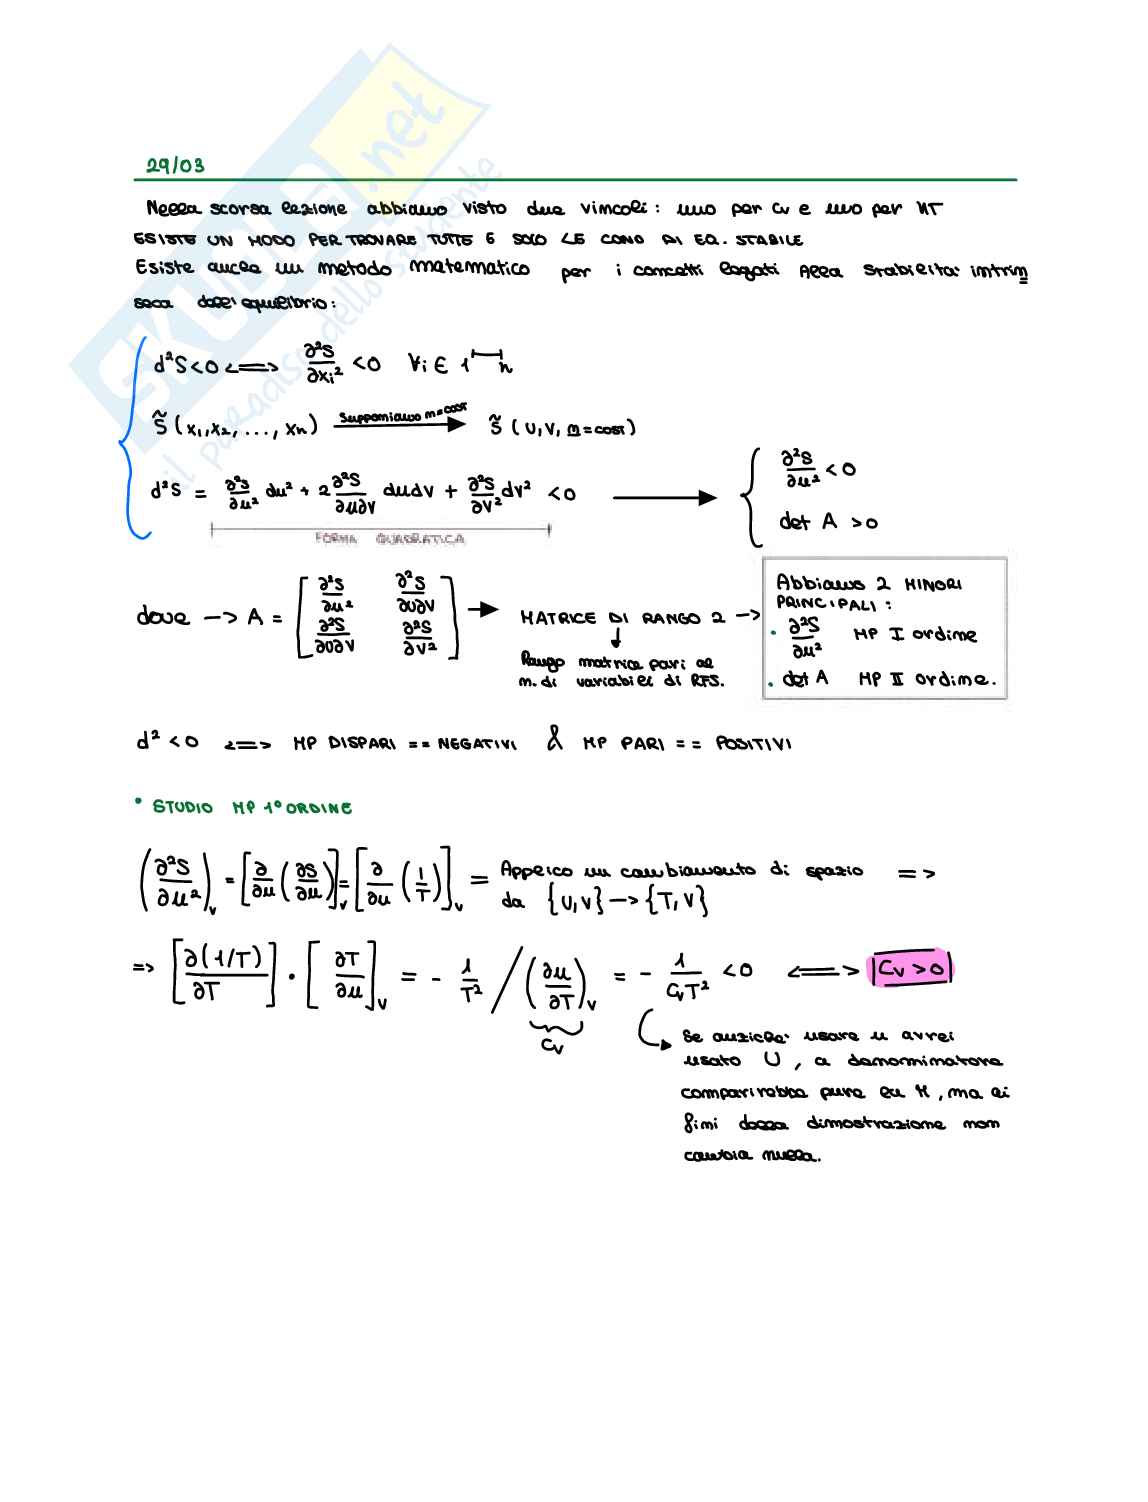 29/03
Nella scorsa lezione abbiamo visto due vincoli: uno per Cv e uno per KT
ESISTE UN MODO PER TROVARE TUTTE E SOLO LE COND DI EQ. STABILE
Esiste anche un metodo matematico per i concetti legati alla stabilità intrin
seca dell'equilibrio:
d²S<0 <=> ∂²S/∂xi² <0 ∀i ∈ 1 ⊢⊣ n
S̃(x1,x2,...,xn) Supponiamo m=cost → S̃(U,V,m=cost)
d²S = ∂²S/∂u² du² + 2 ∂²S/∂u∂v dudv + ∂²S/∂v² dv² <0 → { ∂²S/∂u² <0
det A >0
FORMA QUADRATICA
dove --> A = [ ∂²S/∂u² ∂²S/∂u∂v ; ∂²S/∂u∂v ∂²S/∂v² ] → MATRICE DI RANGO 2 -->
Rango matrice pari al
n. di variabili di RFS.
Abbiamo 2 MINORI
PRINCIPALI:
• ∂²S/∂u² MP I ordine
• det A MP II ordine.
d² <0 <=> MP DISPARI == NEGATIVI & MP PARI == POSITIVI
• STUDIO MP 1° ORDINE
(∂²S/∂u²)v = [∂/∂u (∂S/∂u)]v = [∂/∂u (1/T)]v = Applico un cambiamento di spazio =>
da {U,V} --> {T,V}
=> [∂(1/T)/∂T] • [∂T/∂u]v = - 1/T² / (∂u/∂T)v = - 1/CvT² <0 <=> Cv>0
Cv
Se anziché usare u avrei
usato U, a denominatore
comparirebbe pure la M, ma ai
fini della dimostrazione non
cambia nulla.
SKUOLA.net
il paradiso dello studente